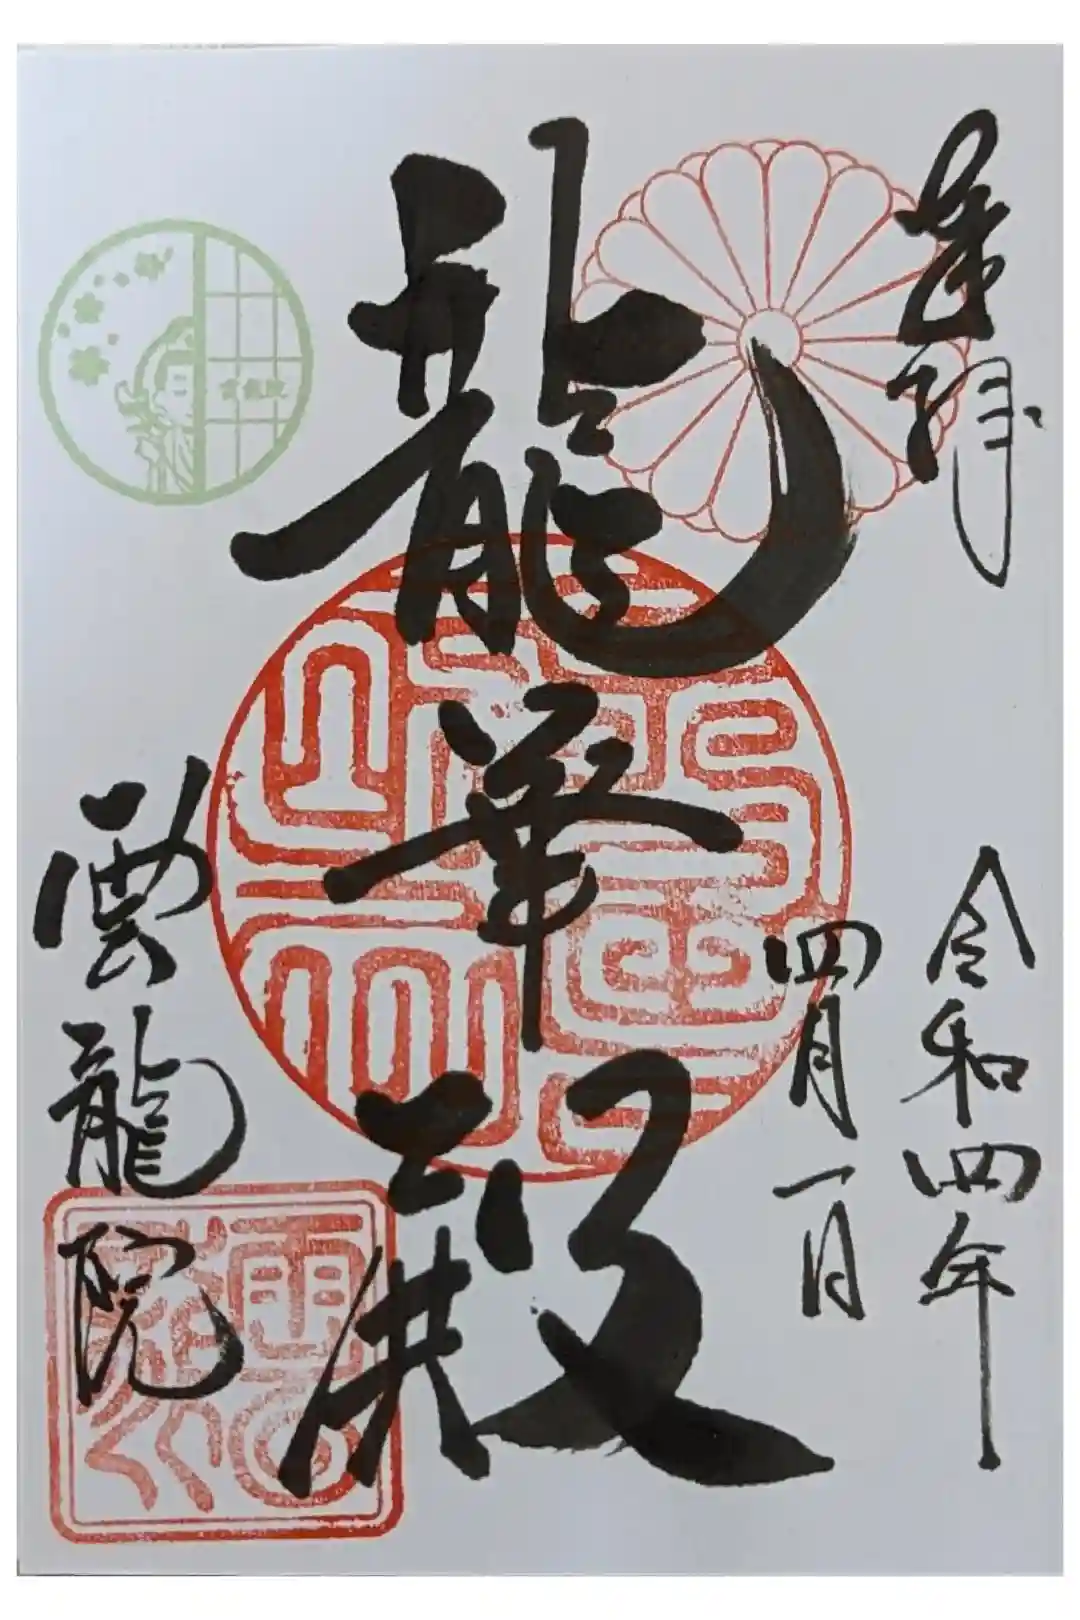 奉拝
令和四年
四月一日
龍華殿
雲龍院
雲龍院